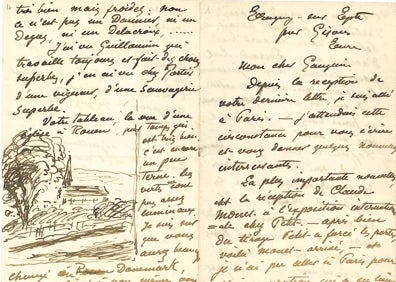 Eragny-sur-Epte
par Gisors
Eure
Mon cher Gauguin
Depuis la reception de
votre dernière lettre, je suis allé
à Paris. — J'attendais cette
circonstance pour vous écrire
et vous donner quelques nouvelles
interressantes.
La plus importante nouvelle,
est la reception de Claude
Monet à l'exposition internation
=ale chez Petit — après bien
du tirage Petit a forcé la porte,
voilà Monet arrivé, — et
je n'ai pu aller à Paris, pour
très bien mais froides: non
ce n'est pas un Daumier, ni un
Degas, ni un Delacroix, ......
J'ai vu Guillaumin qui
travaille toujours et fait des choses
superbes, j'en ai vu chez Portier
d'une vigueur, d'une Sauvagerie
superbe.
Votre tableau, la vue d'une
église à Rouen,
qui
est très bien,
c'est encore
un peu
terne. les
verts sont
pas assez
lumineux.
Je suis sur
que vous
aurez beaucoup
changé en Danemark,